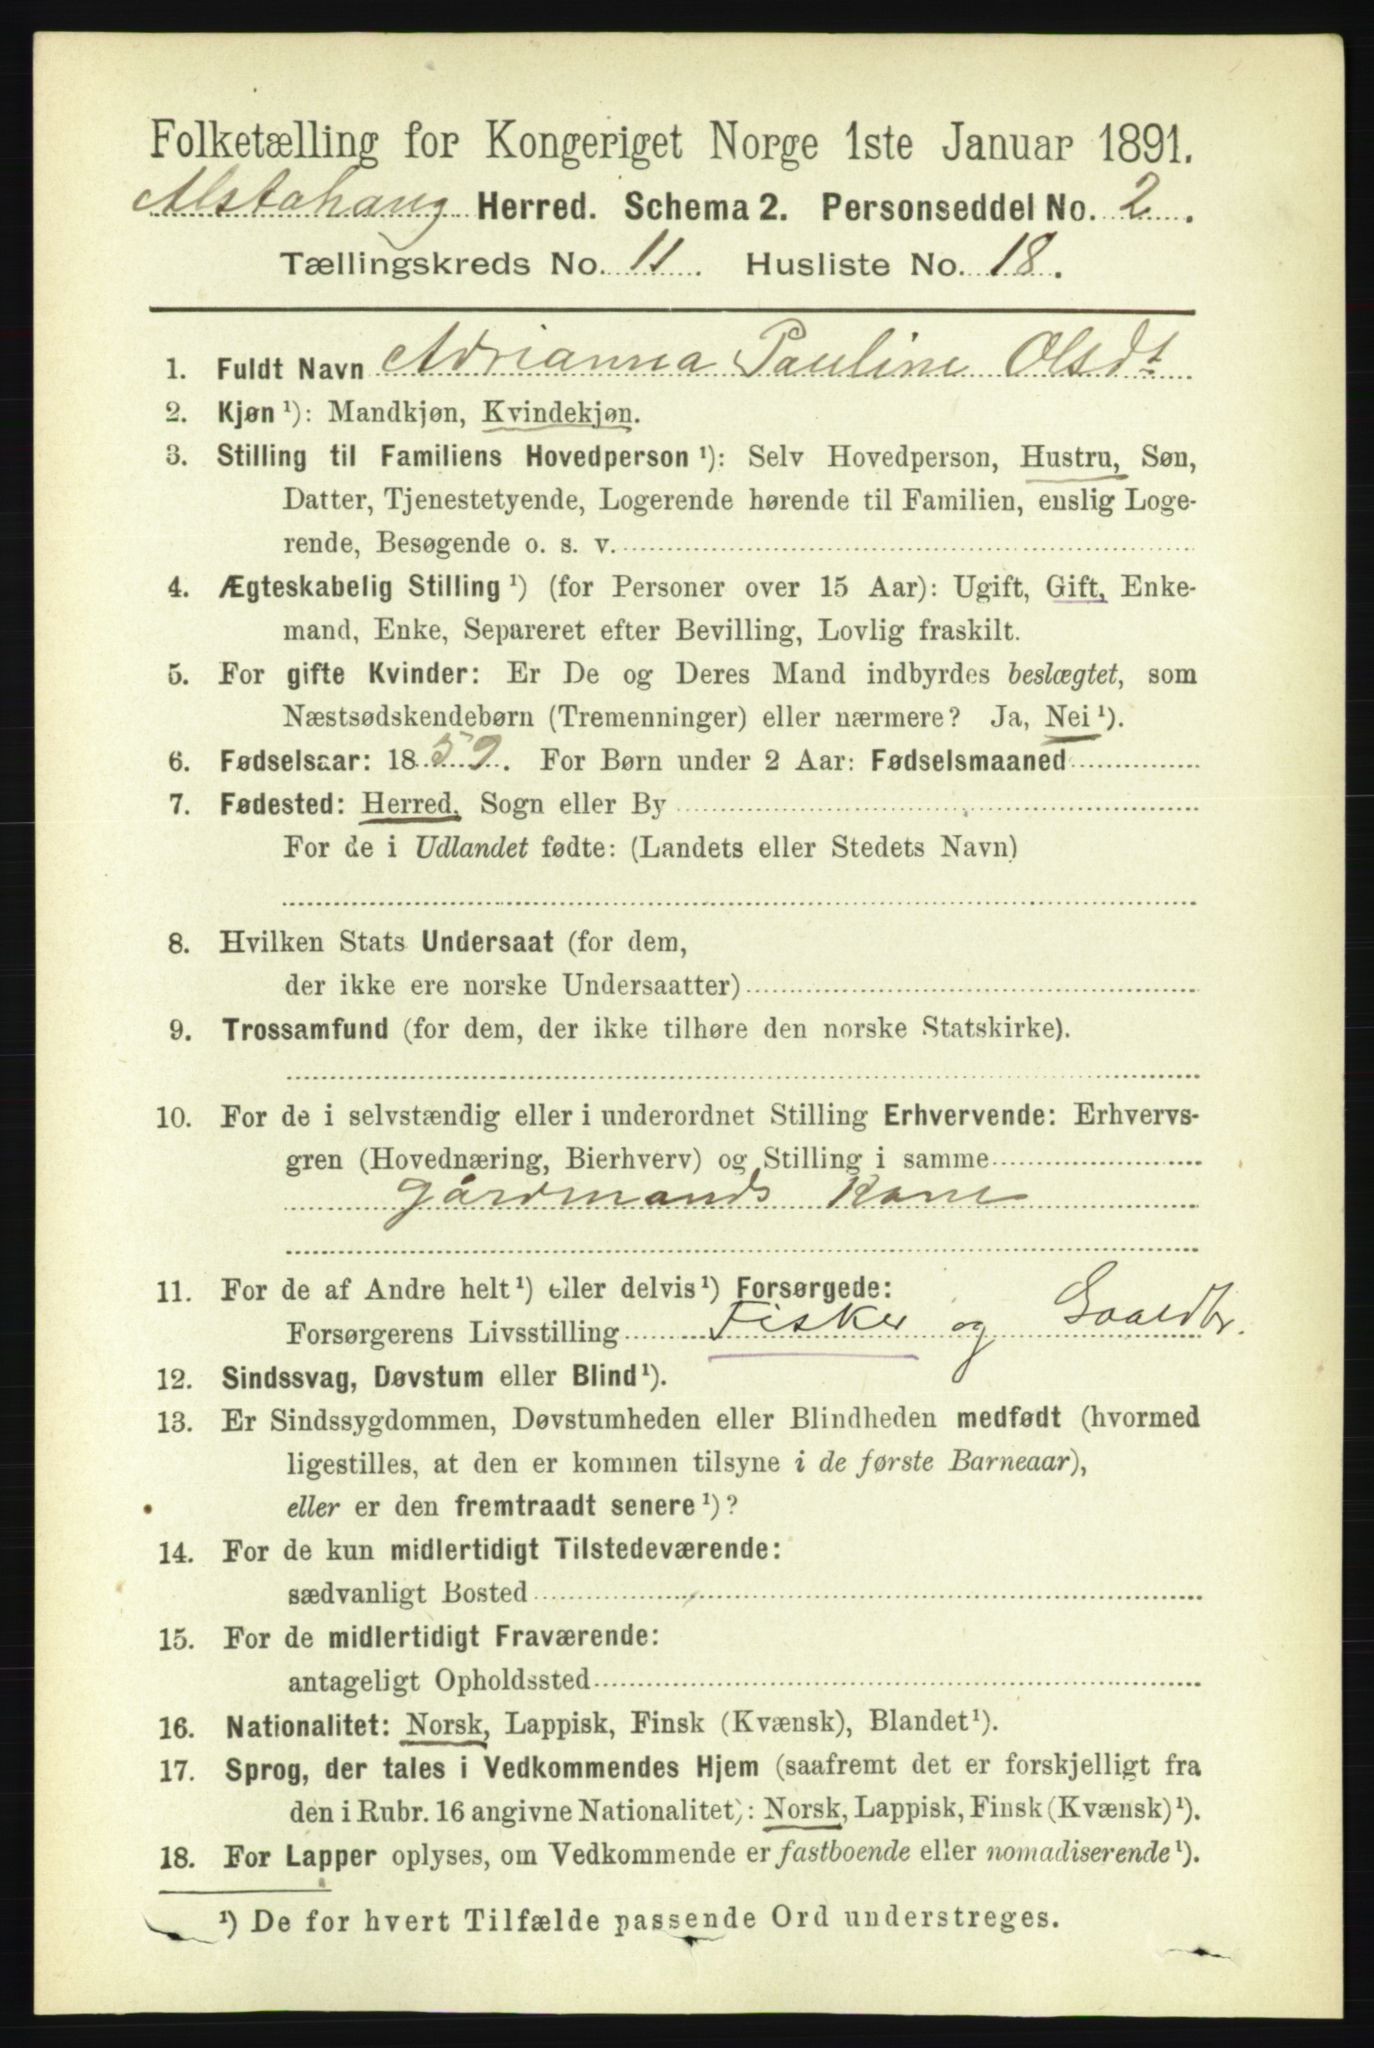 Folketælling for Kongeriget Norge 1ste Januar 1891.
Alstahaug Herred. Schema 2. Personseddel No. 2.
Tællingskreds No. 11. Husliste No. 18.
1. Fuldt Navn Adrianna Pauline Olsdt
2. Kjøn ¹): Mandkjøn, Kvindekjøn.
3. Stilling til Familiens Hovedperson ¹): Selv Hovedperson, Hustru, Søn,
Datter, Tjenestetyende, Logerende hørende til Familien, enslig Loge-
rende, Besøgende o. s. v.
4. Ægteskabelig Stilling ¹) (for Personer over 15 Aar): Ugift, Gift, Enke-
mand, Enke, Separeret efter Bevilling, Lovlig fraskilt.
5. For gifte Kvinder: Er De og Deres Mand indbyrdes beslægtet, som
Næstsødskendebørn (Tremenninger) eller nærmere? Ja, Nei ¹).
6. Fødselsaar: 1859. For Børn under 2 Aar: Fødselsmaaned
7. Fødested: Herred, Sogn eller By
For de i Udlandet fødte: (Landets eller Stedets Navn)
8. Hvilken Stats Undersaat (for dem,
der ikke ere norske Undersaatter)
9. Trossamfund (for dem, der ikke tilhøre den norske Statskirke).
10. For de i selvstændig eller i underordnet Stilling Erhvervende: Erhvervs-
gren (Hovednæring, Bierhverv) og Stilling i samme
Gårdmands Kone
11. For de af Andre helt ¹) eller delvis ¹) Forsørgede:
Forsørgerens Livsstilling Fisker og
12. Sindssvag, Døvstum eller Blind ¹).
13. Er Sindssygdommen, Døvstumheden eller Blindheden medfødt (hvormed
ligestilles, at den er kommen tilsyne i de første Barneaar),
eller er den fremtraadt senere ¹)?
14. For de kun midlertidigt Tilstedeværende:
sædvanligt Bosted
15. For de midlertidigt Fraværende:
antageligt Opholdssted
16. Nationalitet: Norsk, Lappisk, Finsk (Kvænsk), Blandet ¹).
17. Sprog, der tales i Vedkommendes Hjem (saafremt det er forskjelligt fra
den i Rubr. 16 angivne Nationalitet): Norsk, Lappisk, Finsk (Kvænsk) ¹).
18. For Lapper oplyses, om Vedkommende er fastboende eller nomadiserende ¹).
¹) De for hvert Tilfælde passende Ord understreges.